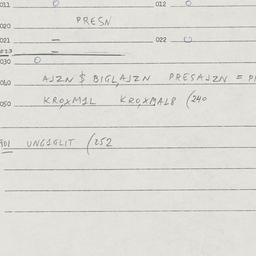 011 0 012 0
020 PRESN
021 — 022 0
023 —
030 0
040 AJZN $ BIGL,AJZN PRESAJZN = P
050 KROXM1L KROXMAL8 (240
901 UNG1GLIT (252